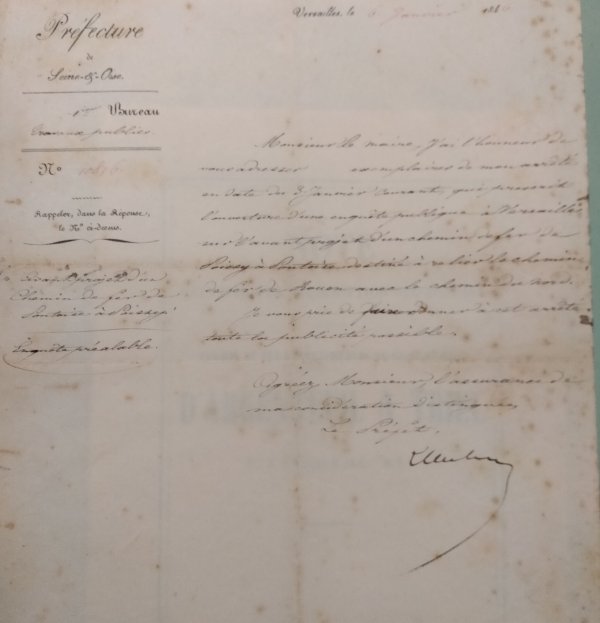 Préfecture
de
Seine-&-Oise.
Bureau
Travaux publics.
N°
Rappeler, dans la Réponse,
le N° ci-dessus.
avant projet d'un
Chemin de fer de
Pontoise à Poissy
Enquête préalable.
Versailles, le 6 Janvier 1846
Monsieur le maire, J'ai l'honneur de
vous adresser exemplaires de mon arrêté
en date du 3 Janvier Courant, qui prescrit
l'ouverture d'une enquête publique à Versailles
sur l'avant projet d'un chemin de fer de
Poissy à Pontoise destiné à relier le chemin
de fer de Rouen avec le chemin du nord.
Je vous prie de faire donner à cet arrêté
toute la publicité possible.
Agréez, Monsieur, l'assurance de
ma considération distinguée,
Le Préfet.